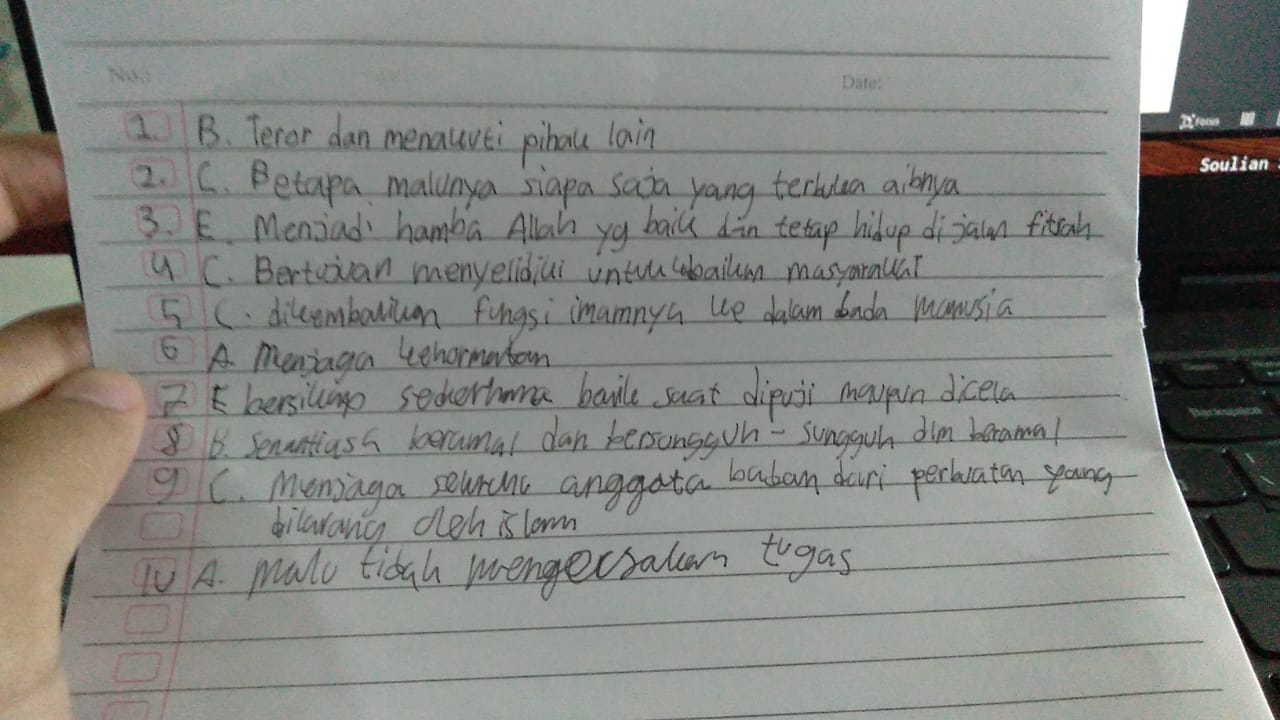 No.:
Date:
1. B. Teror dan menakuti pihak lain
2. C. Betapa malunya siapa saja yang terbuka aibnya
3. E. Menjadi hamba Allah yg baik dan tetap hidup di jalan fitrah
4 C. Bertujuan menyelidiki untuk kebaikan masyarakat
5 C. dikembalikan fungsi imamnya ke dalam bada manusia
6 A. Menjaga kehormatan
7 E bersikap sederhana baik saat dipuji maupun dicela
8 B. Senantiasa beramal dan bersungguh - sungguh dlm beramal
9 C. Menjaga seluruh anggota badan dari perbuatan yang
dilarang oleh islam
10 A. malu tidak mengerjakan tugas
Focus
Soulian
Backspace